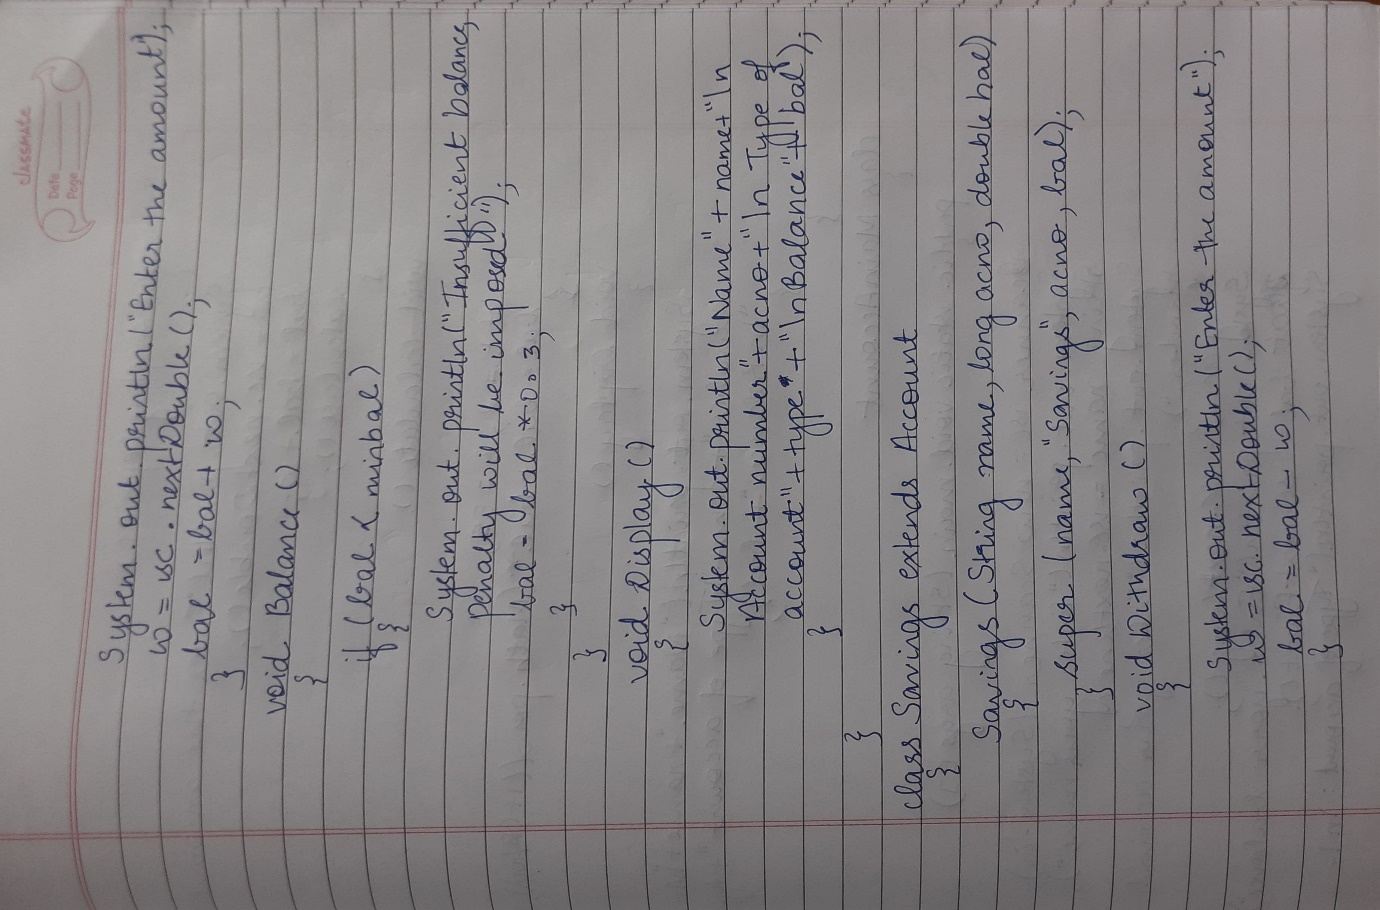 classmate
Date
Page
System.out.println("Enter the amount");
w = sc.nextDouble();
bal = bal + w;
}
void Balance()
{
if (bal < minbal)
{
System.out.println("Insufficient balance,
Penalty will be imposed");
bal = bal * 0.03;
}
}
void Display()
{
System.out.println("Name" + name + "\n
Account number" + acno + "\n Type of
account" + type + "\nBalance" + bal);
}
}
class Savings extends Account
{
Savings(String name, long acno, double bal)
{
super(name, "Savings", acno, bal);
}
void Withdraw()
{
System.out.println("Enter the amount");
w = sc.nextDouble();
bal = bal - w;
}